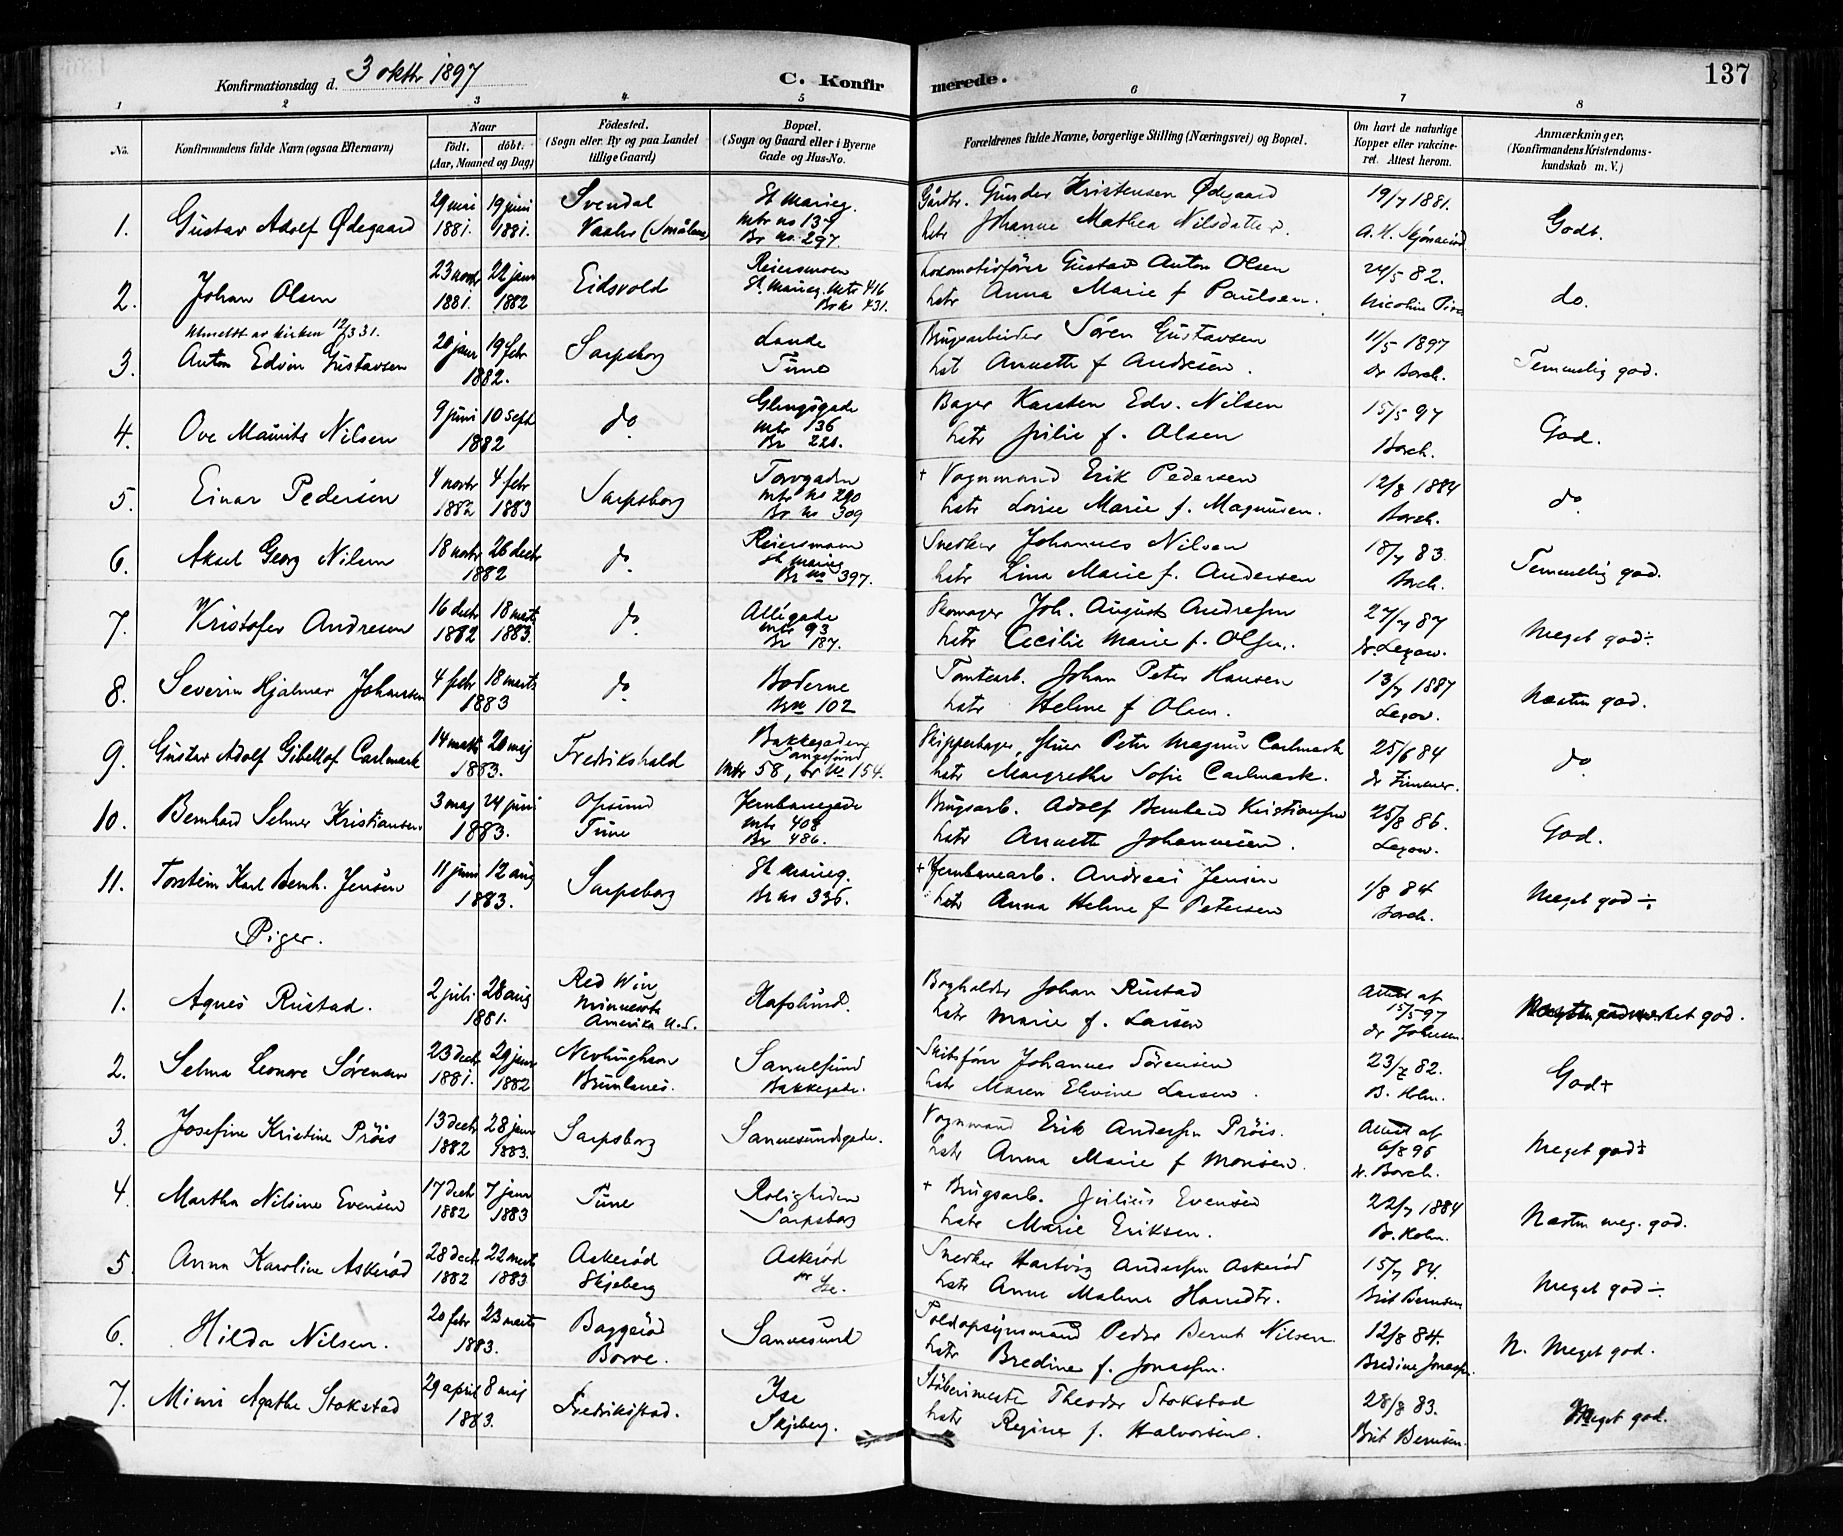 Konfirmationsdag d. 3 oktbr 1897
C. Konfirmerede.
137
1 2 3 4 5 6 7 8
No.
Konfirmandens fulde Navn (ogsaa Efternavn)
Naar
födt. döbt.
(Aar, Maaned og Dag)
Födested.
(Sogn eller By og paa Landet
tillige Gaard)
Bopæl.
(Sogn og Gaard eller i Byerne
Gade og Hus-No.
Forældrenes fulde Navne, borgerlige Stilling (Næringsvei) og Bopæl.
Om havt de naturlige
Kopper eller vakcine-
ret. Attest herom.
Anmærkninger.
(Konfirmandens Kristendoms-
kundskab m. V.)
1. Gustav Adolf Ødegaard
29 mai 1881. 19 juni 1881.
Svendal
Vaaler (Smålene)
St. Marieg.
Mtr no 137
Br no. 297.
Gårdbr. Gunder Kristensen Ødegaard
hstr Johanne Mathea Nilsdatter.
19/7 1881.
Godt.
2. Johan Olsen
23 novbr 1881. 22 janr 1882
Eidsvold
Reiersmoen
St. Marieg. Mtr 416
Br no 431.
Lokomotivförer Gustav Anton Olsen
hstr Anna Marie f Paulsen.
24/5 82.
do.
Utmeldt av kirken 12/3 31.
3. Anton Edvin Gustavsen
20 janr 19 febr
1882.
Sarpsborg
Lande
Tune
Brugsarbeider Sören Gustavsen
hst Annette f Andresen.
11/5 1897
Dr Borch.
Temmelig god.
4. Ove Mauritz Nilsen
9 juni 10 sept
1882
do
Glengsgade
Mtr 136
Br 221.
Bager Karsten Edv. Nilsen
hstr Julie f. Olsen
15/5 97
Borch.
God.
5. Einar Pedersen
4 novbr 1882 4 febr 1883
Sarpsborg
Torvgaden
Mtr no 290
Br no 309
+ Vognmand Erik Pedersen
hstr Lovise Marie f. Magnussen.
12/8 1884
Borch.
do
6. Aksel Georg Nilsen
18 novbr 26 decbr
1882
do
Reiersmoen
St. Marieg
Br no 397.
Snedker Johannes Nilsen
hstr Lina Marie f. Andersen
18/7 83.
Borch.
Temmelig god.
7. Kristofer Andresen
16 decbr 1882 18 marts 1883.
do
Allégade
Mtr 93
Br 187.
Skomager Joh. August Andresen
hstr Cecilie Marie f. Olsen.
27/7 87
Dr. Legow.
Meget god÷
8. Severin Hjalmar Johansen
4 febr 18 marts
1883
do
Boderne
Br no 102
Tomtearb. Johan Peter Hansen
hstr Helene f Olsen.
13/7 1887
Legow.
Næsten god.
9. Gustav Adolf Carlmark
14 marts 20 maj
1883.
Fredrikshald
Bakkegaden
Mtr 58, Br no 154.
Peter Magnus Carlmark
hstr Margrethe Sofie Carlmark.
25/6 84
do
10. Bernhard Selmer Kristiansen
3 maj 24 juni
1883.
Opsund
Tune
Jernbanegade
Mtr 408
Br 486.
Brugsarb. Adolf Bernhard Kristiansen
hstr Annette Johannesen.
25/8 86.
Legow.
God.
11. Torstein Karl Bernh. Jensen
11 juni 12 aug
1883.
Sarpsborg
St Marieg.
Br no 336.
+ Jernbanearb. Andreas Jensen
hstr Anna Helene f Petersen
1/8 84
Borch.
Meget god ÷
Piger.
1. Agnes Rustad.
2 juli 28 aug
1881.
Red Wing
Minnesota
Amerika U.S.
Hafslund.
Bogholder Johan Rustad
hstr Marie f. Larsen
Attest af
15/5 97
Dr Johnsen.
god.
2. Selma Leonore Sörensen
23 decbr 1881. 29 janr 1882
Nevlunghavn
Brunlanes.
Sannesund
Bakkegade.
Skibsförer Johannes Sörensen
hstr Maren Elevine Larsen.
82.
B. Holm.
God+
3. Josefine Kristine Pröis
13 decbr 1882 28 janr 1883.
Sarpsborg
Sannesundsgade.
Vognmand Erik Andersen Pröis.
hstr Anna Marie f Monsen.
Attest af
6/8 96
Borch.
Meget god÷
4. Martha Nilsine Evensen
17 decbr 1882 7 janr 1883
Tune
Roligheden
Sarpsborg
+ Brugsarb. Julius Evensen
hstr Marie Eriksen.
22/7 1884
B. Holm.
Næsten meg. god.
5. Anna Karoline Askeröd
28 decbr 1882 22 marts 1883
Askeröd
Skjeberg
Askeröd
pr Ise.
Snedker Hartvig Andersen Askeröd
hstr Anne Malene Hansdtr.
15/7 84.
Brit Berntsen
Meget god÷
6. Hilda Nilsen.
20 febr 23 marts
1883.
Baggeröd
Borre.
Sannesund
Toldopsynsmand Peder Bernt Nilsen
hstr Bredine f. Jonassen.
12/8 84.
Bredine Jonassen.
N. Meget god.
7. Mimi Agathe Stokstad
29 april 8 maj
1883.
Fredrikstad.
Ise
Skjeberg.
Stöberimester Theodor Stokstad
hstr Regine f. Halvorsen.
28/8 83.
Brit Berntsen.
Meget god.